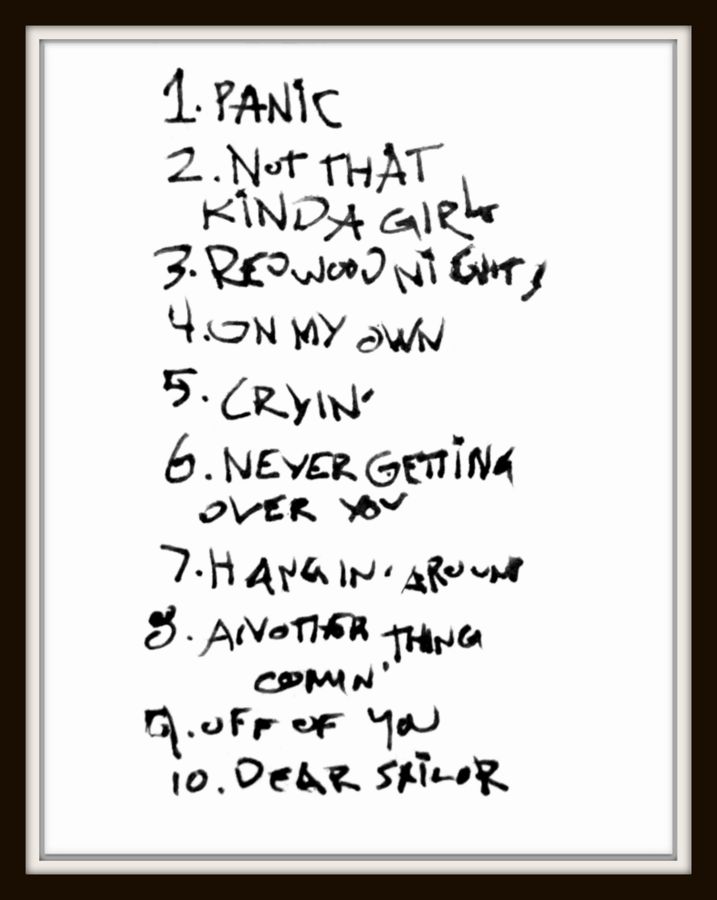 1. PANIC
2. NOT THAT
KINDA GIRL
3. REDWOOD NIGHTS
4. ON MY OWN
5. CRYIN'
6. NEVER GETTING
OVER YOU
7. HANGIN' AROUND
8. ANOTHER THING
COMIN'
9. OFF OF YOU
10. DEAR SAILOR